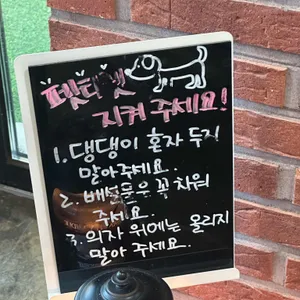 펫티켓
지켜 주세요!
1. 댕댕이 혼자 두지
말아주세요.
2. 배설물은 꼭 치워
주세요.
3. 의자 위에는 올리지
말아 주세요.